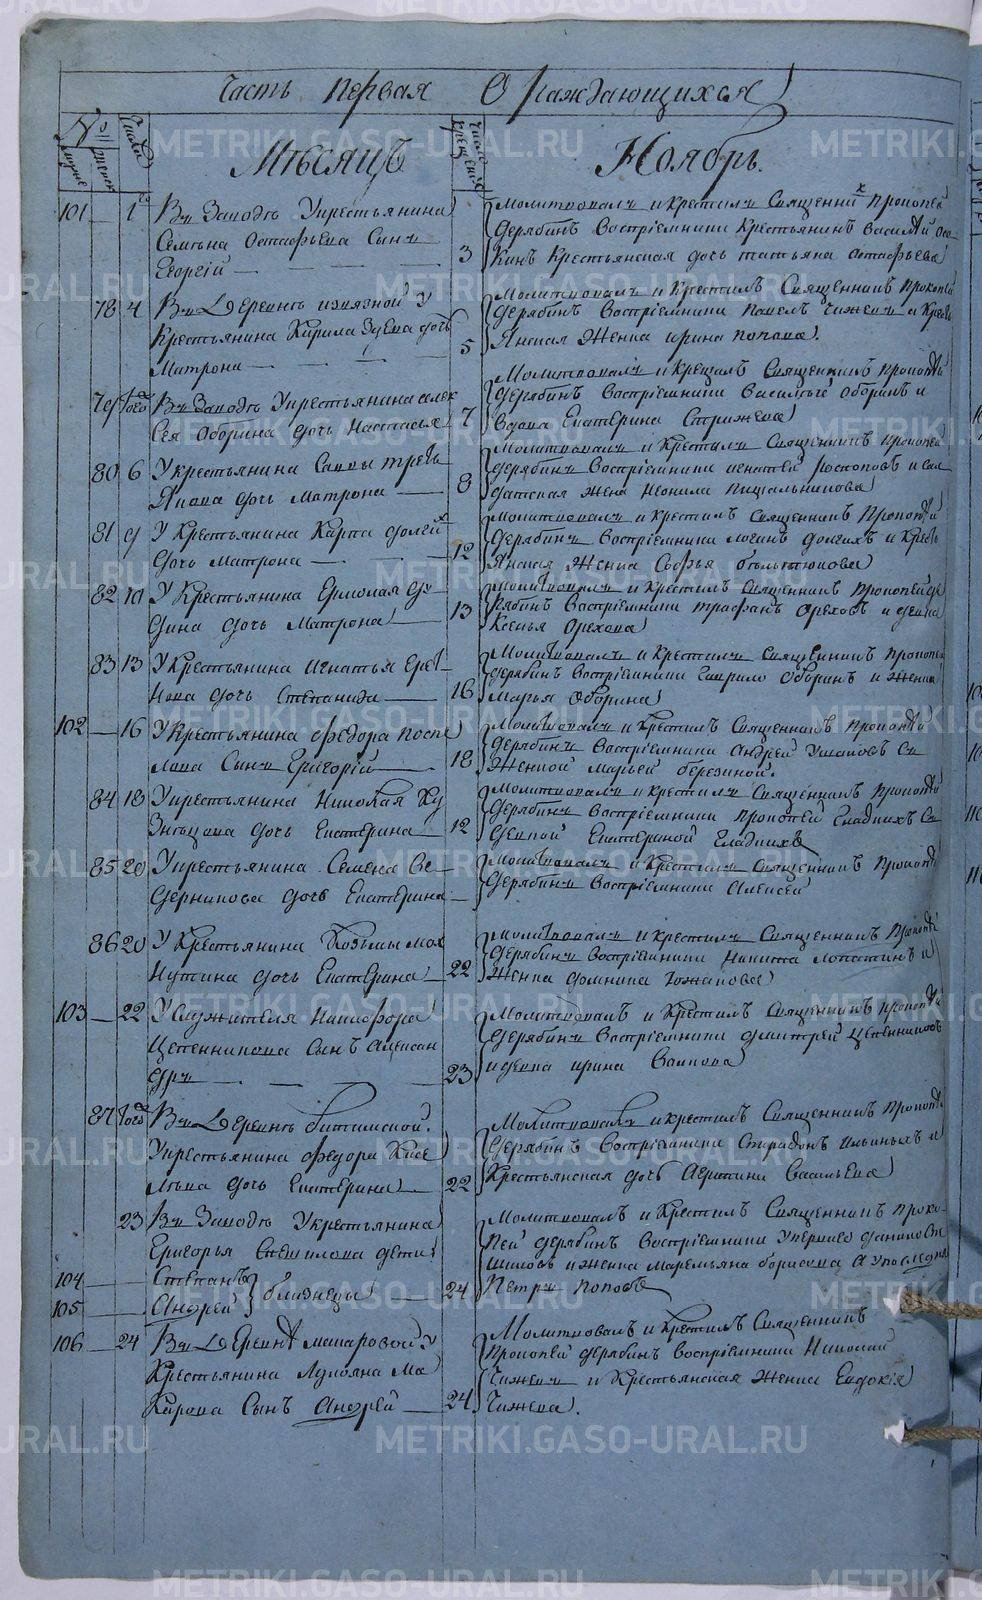 Часть первая О раждающихся
№
Мѣсяцъ Ноябрь.
101 1 Въ Заводѣ У крестьянина
Семена Остафьева Сынъ
Георгій 3
Молитвовалъ и крестилъ Священникъ Прокопей
Дерябинъ Воспріемники Крестьянинъ Василей
Крестьянская дочь Татьяна Остафьева
78 4 Въ Деревнѣ извязной У
Крестьянина Кирила Зуева дочь
Матрона 5
Молитвовалъ и Крестилъ Священникъ Прокопей
Дерябинъ Воспріемники Павелъ Чижевъ и Кресть
янская Женка ирина попова.
79 Того Въ Заводѣ У крестьянина алек
сея Оборина дочь Настасья 7
Молитвовалъ и Крещалъ Священникъ Прокопей
Дерябинъ Воспріемники Василей Оборинъ и
Вдова Екатерина Стрижева
80 6 У крестьянина Савы треть
якова дочь Матрона 8
Молитвовалъ и Крестилъ Священникъ Прокопей
Дерябинъ Воспріемники игнатей и сал
датская жена Неонила Пищальникова
81 9 У Крестьянина Карпа
дочь Матрона 12
Молитвовалъ и Крестилъ Священникъ Прокопей
Дерябинъ Воспріемники логинъ долгихъ и Кресть
янская Женка Софья бѣльтюкова
82 10 У Крестьянина Ермолая Ду
дина дочь Матрона 13
Молитвовалъ и Крестилъ Священникъ Прокопей Де
рябинъ Воспріемники трофанъ Ореховъ и девка
Ксенья Орехова
83 13 У Крестьянина игнатья
дочь Степанида 16
Молитвовалъ и Крестилъ Священникъ Прокопей
Дерябинъ Воспріемники Гаврило Оборинъ и Женка
Марья Оборина
102 16 У Крестьянина Федора поспе
лова Сынъ Григорій 18
Молитвовалъ и Крестилъ Священникъ Прокопей
Дерябинъ Воспріемники Андрей Ушаковъ съ
Женкой Марьей березиной.
84 18 У крестьянина Николая Ку
знецова дочь Екатерина 12
Молитвовалъ и Крестилъ Священникъ Прокопей
Дерябинъ Воспріемники Прокопей Гладкихъ съ
Девкой Екатериной Гладкихъ
85 20 У крестьянина Семена Ве
дерникова дочь Екатерина
Молитвовалъ и Крестилъ Священникъ Прокопей
Дерябинъ Воспріемники Алексей
86 20 У Крестьянина Козьмы Мок
дочь Екатерина 22
Молитвовалъ и крестилъ Священникъ Прокопей
Дерябинъ Воспріемники Никита Лопатинъ и
Женка домника Южакова
103 22 У Служителя Никифора
Щепеникова Сынъ Алексан
дръ 23
Молитвовалъ и Крестилъ Священникъ Прокопей
Дерябинъ Воспріемники Дмитрей Щепениковъ
и девка ирина
87 Того Въ Деревнѣ битимской.
У крестьянина федора Кисе
лева дочь Екатерина 22
Молитвовалъ и крестилъ Священникъ Прокопей
Дерябинъ Воспріемники Спиридонъ ильиныхъ и
Крестьянская дочь Агрипина Васильева
23 Въ Заводѣ У Крестьянина
Григорья дѣти
104 Степанъ
105 Андрей близнецы 24
Молитвовалъ и Крестилъ Священникъ Проко
пей Дерябинъ Воспріемники У перваго
и женка Маремьяна борисова А у последня
Петръ Поповъ
106 24 Въ Деревнѣ макаровой У
Крестьянина Лукояна Ма
карова Сынъ Андрей 24
Молитвовалъ и Крестилъ Священникъ
Прокопей Дерябинъ Воспріемники Николай
Чижевъ и Крестьянская Женка Евдокія
Чижева.
METRIKI.GASO-URAL.RU